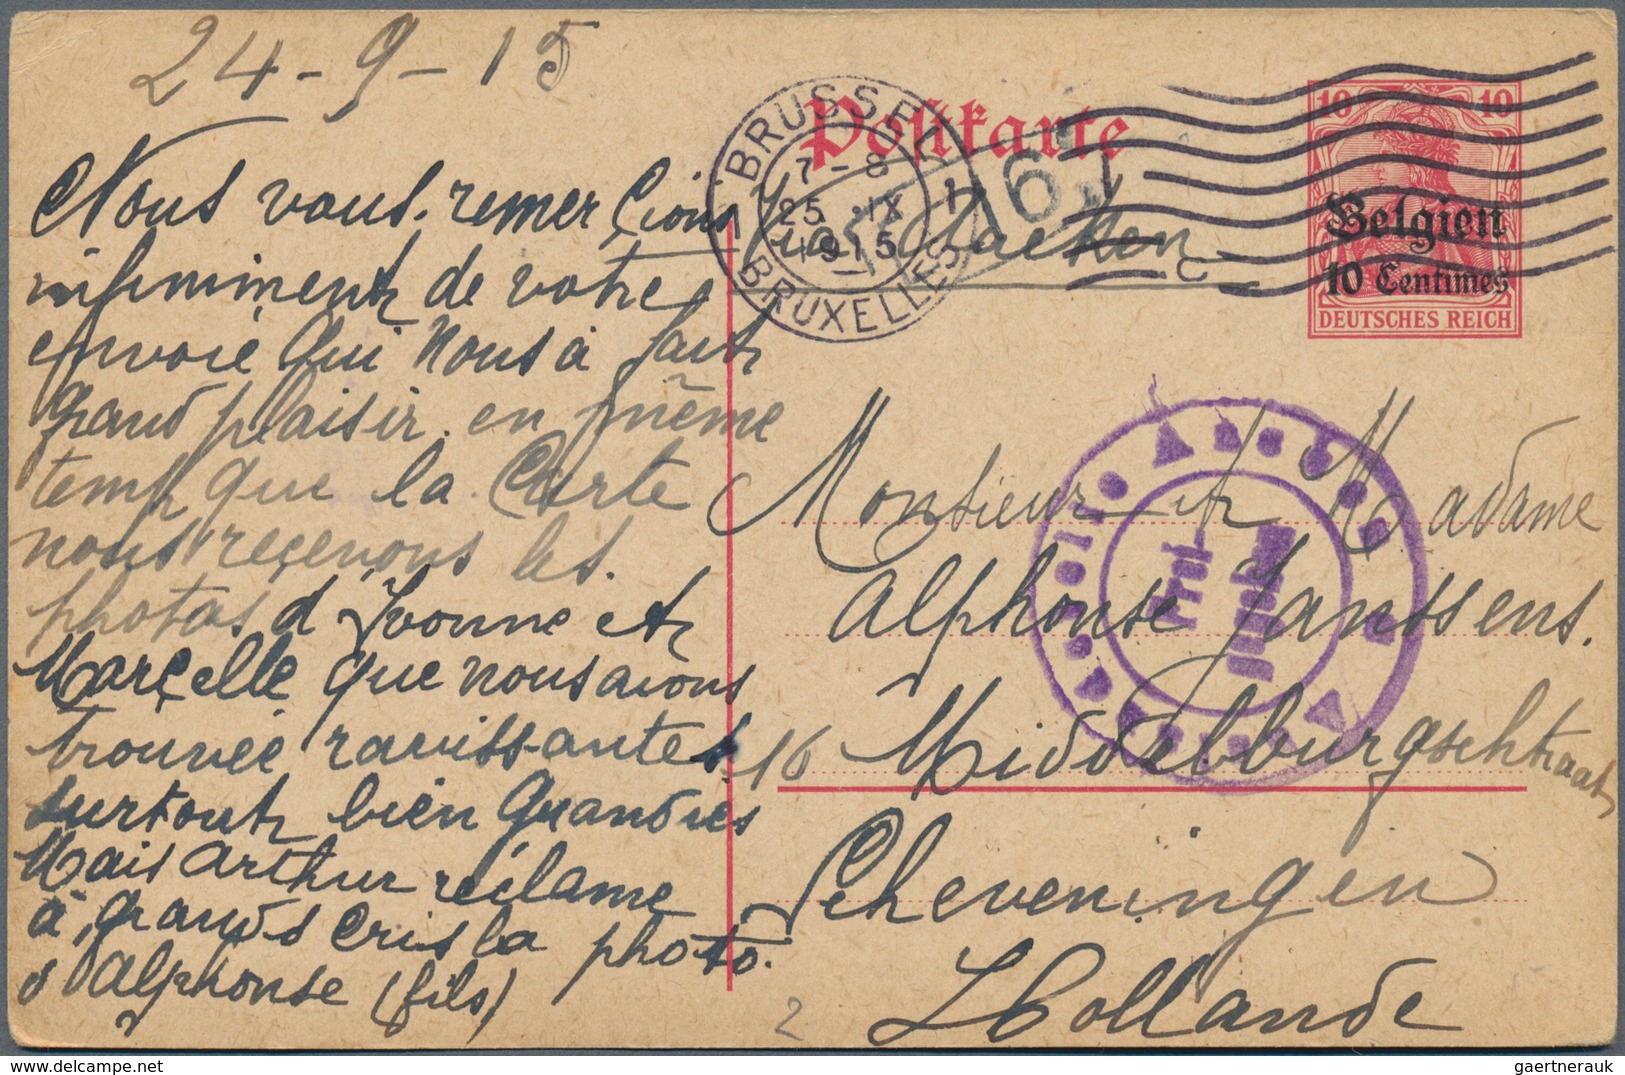 24-9-15
Nous vous remerçions
infiminent de votre
envoie qui nous à fait
grand plaisir en même
temps que la Carte
nous reçenons les
photos d'Yvonne et
Marçelle que nous avons
trouvée ravissantes
surtout bien grandies
Mais Arthur réclame
à grands cris la photo
d'Alphonse (fils)
Postkarte
BRUSSEL 1
7-8
25 IX
1915
1 BRUXELLES
Via Aacken
6
10 10
Belgien
10 Centimes
DEUTSCHES REICH
Monsieur et Madame
Alphonse Janssens.
16 Middelburgschtraat
Scheveningen
Hollande
2
gaertnerauk